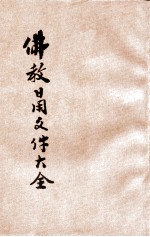 佛教日用文件大全